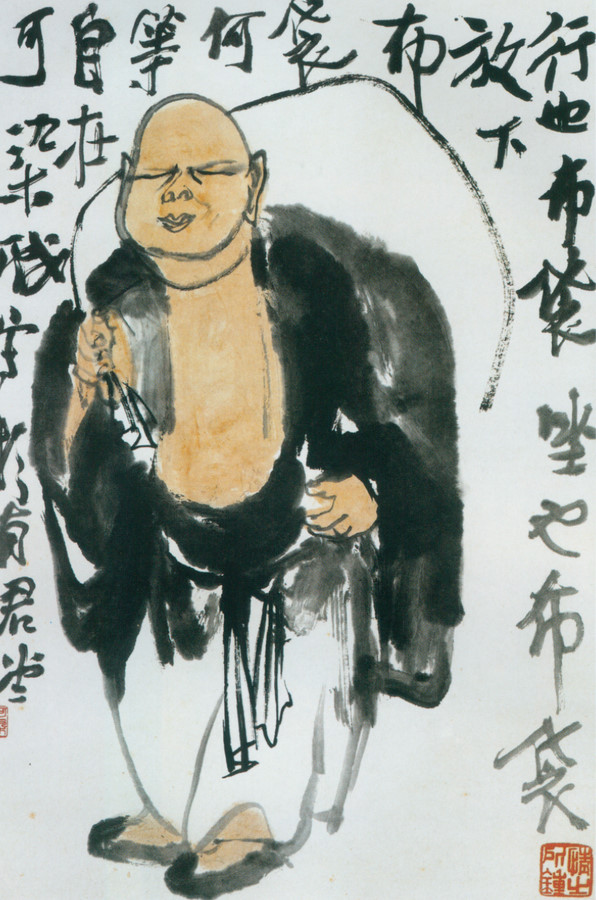 行也布袋坐也布袋
放下
布
袋
何
等
自在
可染戏写於有君堂
情之所鍾